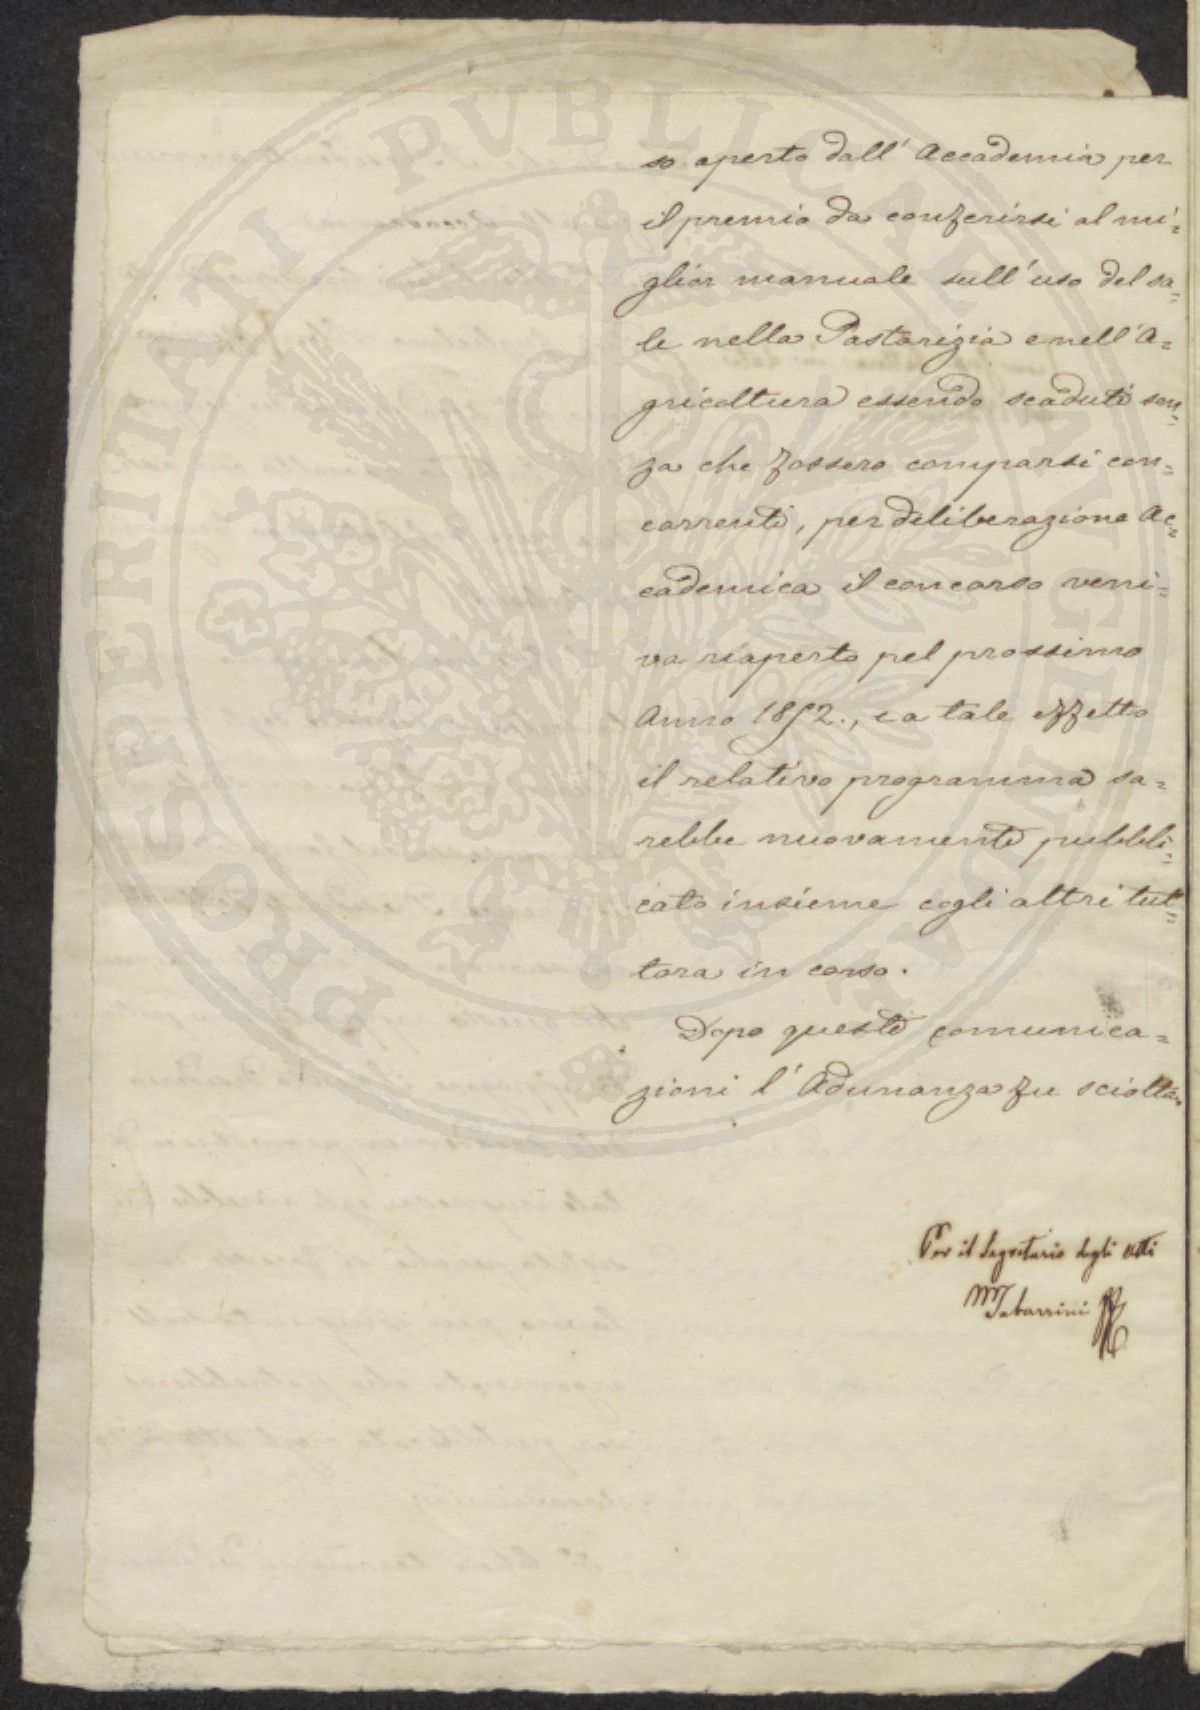 so aperto dall' Accademia per
il premio da conferirsi al mi=
glior manuale sull' uso del sa=
le nella Pastorizia e nell' A=
gricoltura essendo scaduti sen=
za che fossero comparsi con=
correnti, per deliberazione Ac=
cademica il concorso veni=
va riaperto pel prossimo
Anno 1852., e a tale effetto
il relativo programma sa=
rebbe nuovamente pubbli=
cato insieme cogli altri tut=
tora in corso.
Dopo queste comunica=
zioni l' Adunanza fu sciolta.
Per il Segretario degli Atti
M Tabarrini
PROSPERITATI PVBLICAE AVGENDAE